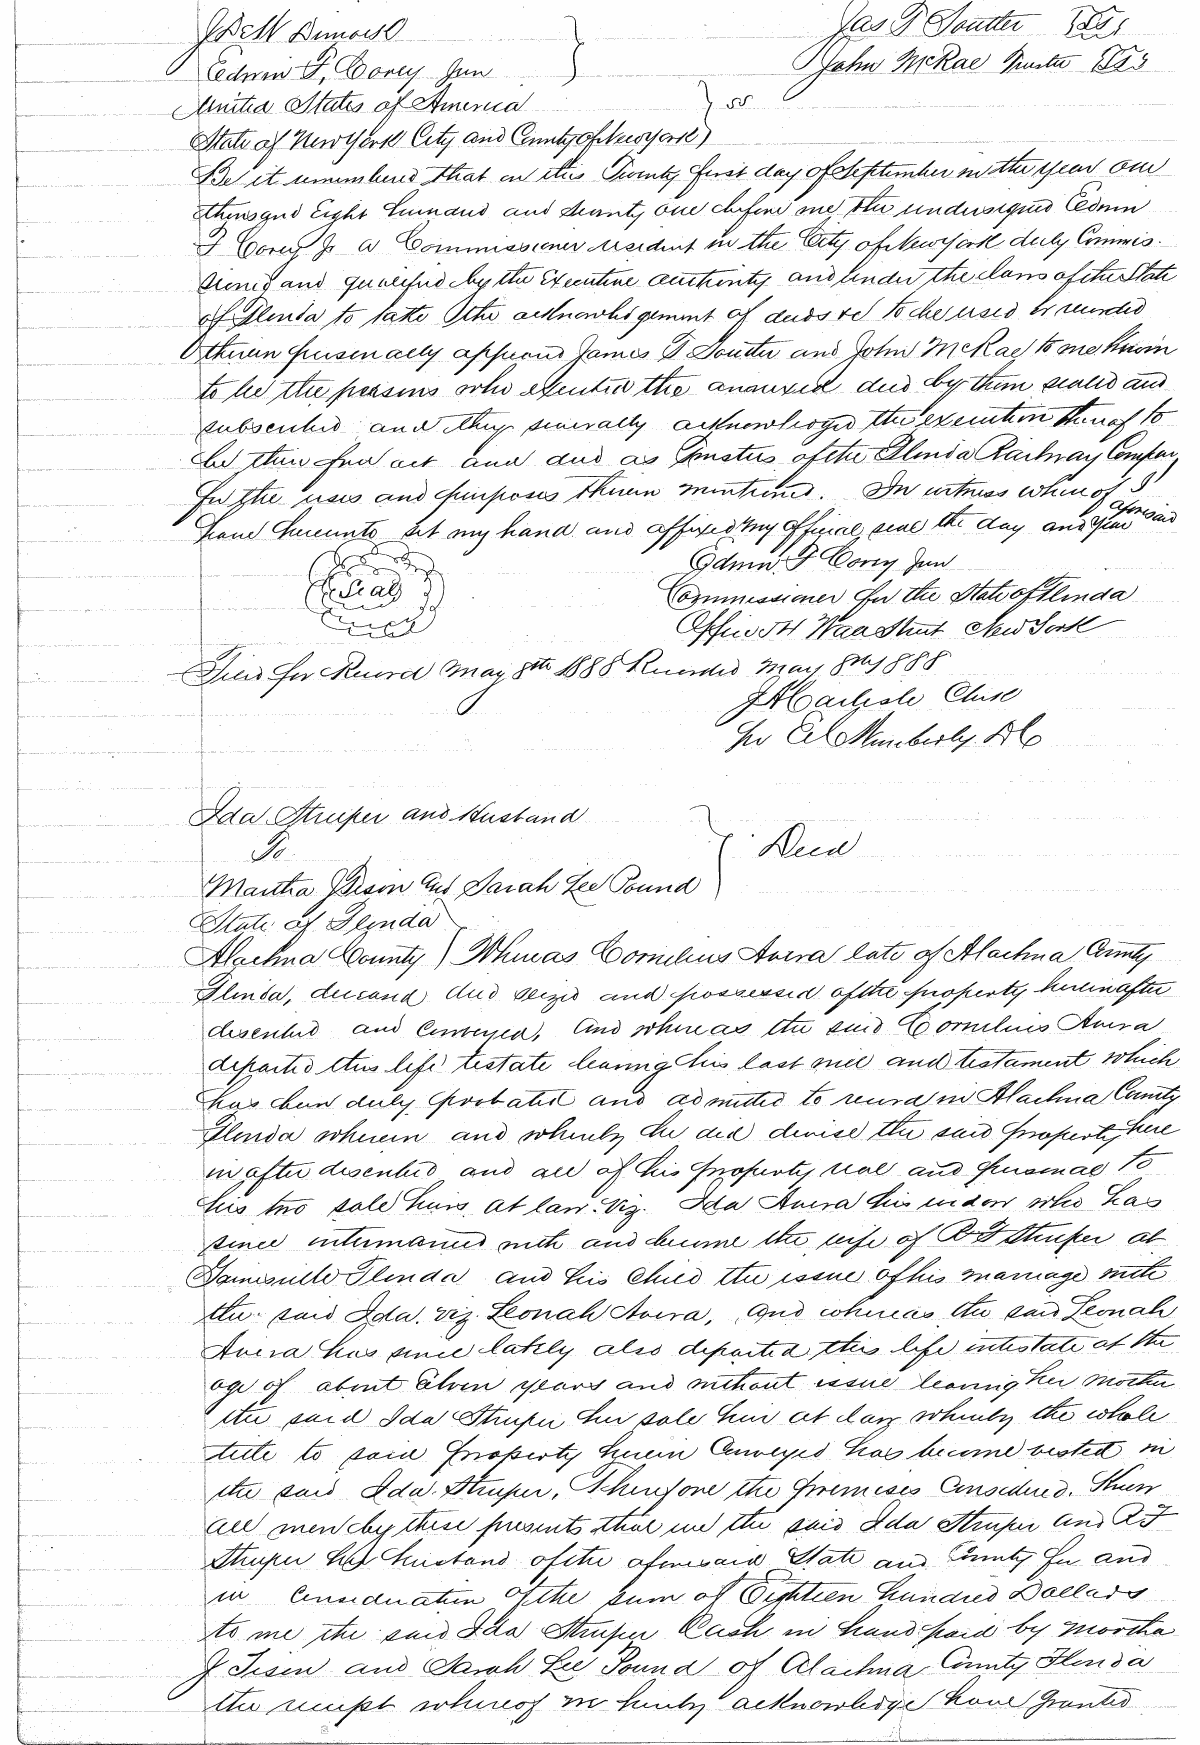 Jas T Soutter
Edwin F. Corey Jun
John McRae Trustee
United States of America } ss
State of New York City and County of New York )
Be it remembered that on this Twenty first day of September in the year one
thousand Eight hundred and seventy one before me the undersigned Edwin
F Corey Jr a Commissioner resident in the City of New York duly Commis-
sioned and qualified by the Executive authority and under the laws of the State
of Florida to take the acknowledgement of deeds &c to be used or recorded
therein personally appeared James T Soutter and John McRae to me known
to be the persons who executed the annexed deed by them sealed and
subscribed and they severally acknowledged the execution thereof to
be their free act and deed as Trustees of the Florida Railway Company
for the uses and purposes therein mentioned. In witness whereof I
have hereunto set my hand and affixed my official seal the day and year aforesaid
Edwin F Corey Jun
Seal
Commissioner for the State of Florida
Office 54 Wall Street New York
Filed for Record May 8th 1888 Recorded May 8th 1888
J A Carlisle Clerk
Per Wimberly D C
Ida Struper and Husband
To } Deed
Martha J Tison and Sarah Lee Pound
State of Florida
Alachua County ) Whereas Cornelius Avera late of Alachua County
Florida, deceased died seized and possessed of the property hereinafter
described and conveyed, and whereas the said Cornelius Avera
departed this life testate leaving his last will and testament which
has been duly probated and admitted to record in Alachua County
Florida wherein and whereby he did devise the said property here
in after described and all of his property real and personal to
his two sole heirs at law. Viz. Ida Avera his widow who has
since intermarried with and become the wife of R F Struper at
Gainesville Florida and his child the issue of his marriage with
the said Ida. viz. Leonah Avera, and whereas the said Leonah
Avera has since lately also departed this life intestate at the
age of about Eleven years and without issue leaving her mother
the said Ida Struper her sole heir at law whereby the whole
title to said property herein Conveyed has become vested in
the said Ida Struper, Therefore the premises Considered. Know
all men by these presents that we the said Ida Struper and R F
Struper her husband of the aforesaid State and County for and
in Consideration of the sum of Eighteen hundred Dollars
to me the said Ida Struper Cash in hand paid by Martha
J Tison and Sarah Lee Pound of Alachua County Florida
the receipt whereof we hereby acknowledge have Granted